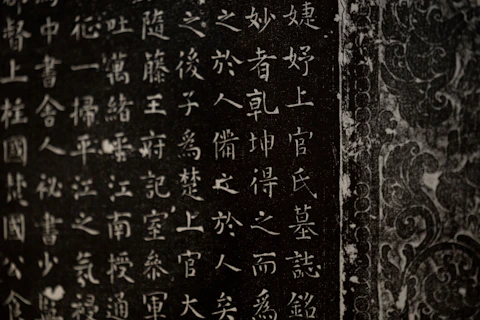 婕妤上官氏墓誌銘
妙者乾坤得之而爲
之於人備之於人矣
之後子爲楚上官大
隨藤王府記室叅軍
吐萬緒平江南授通
征一掃平江之氛祲
中書舍人祕書少監
都督上柱國楚國公食